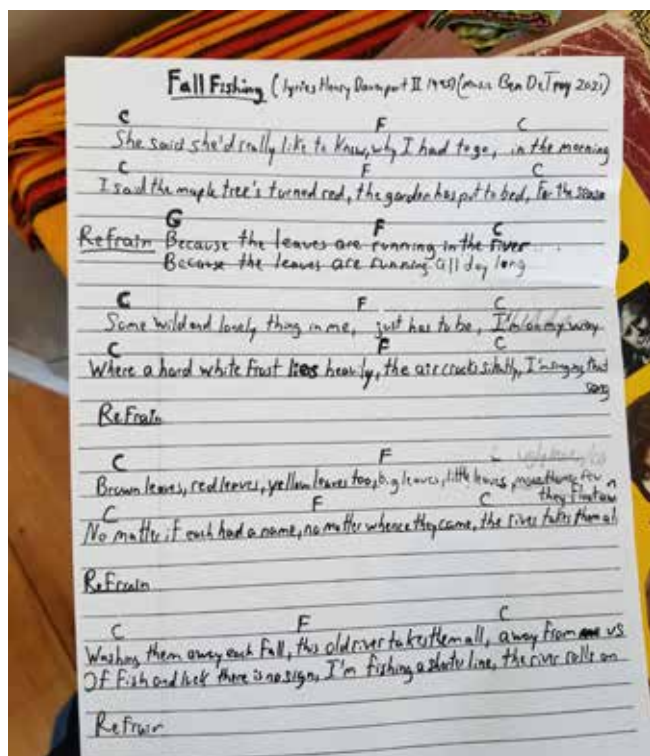 Fall Fishing (lyrics Henry Davenport II 1995) (music Ben DeTroy 2021)
C F C
She said she'd really like to know, why I had to go, in the morning
C F C
I said the maple tree's turned red, the garden has put to bed, for the season
G F C
Refrain Because the leaves are running in the river...
Because the leaves are running all day long
C F C
Some wild and lonely thing in me, just has to be, I'm on my way
C F C
Where a hard white frost lies heavily, the air cracks silently, I'm singing that
song
Refrain
C F C
Brown leaves, red leaves, yellow leaves too, big leaves, little leaves,
C F C they float
No matter if each had a name, no matter whence they came, the river takes them all
Refrain
C F C
Washing them away each Fall, this old river takes them all, away from us
Of fish and luck there is no sign, I'm fishing a shorter line, the river rolls on
Refrain